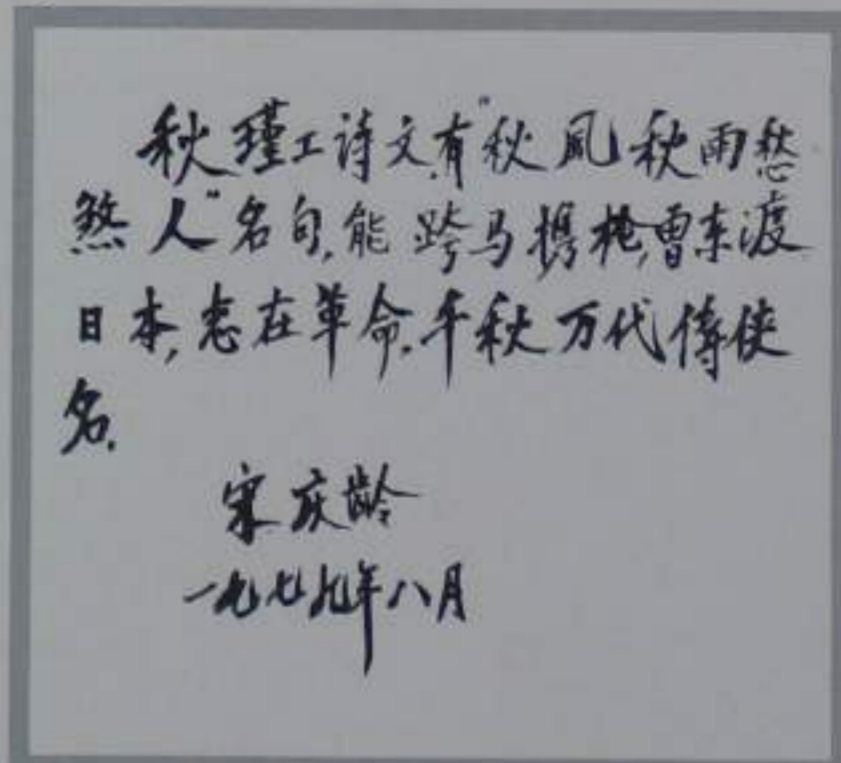 秋瑾工诗文,有"秋风秋雨愁
煞人"名句,能跨马携枪,曾东渡
日本,志在革命,千秋万代传侠
名.
宋庆龄
一九七九年八月